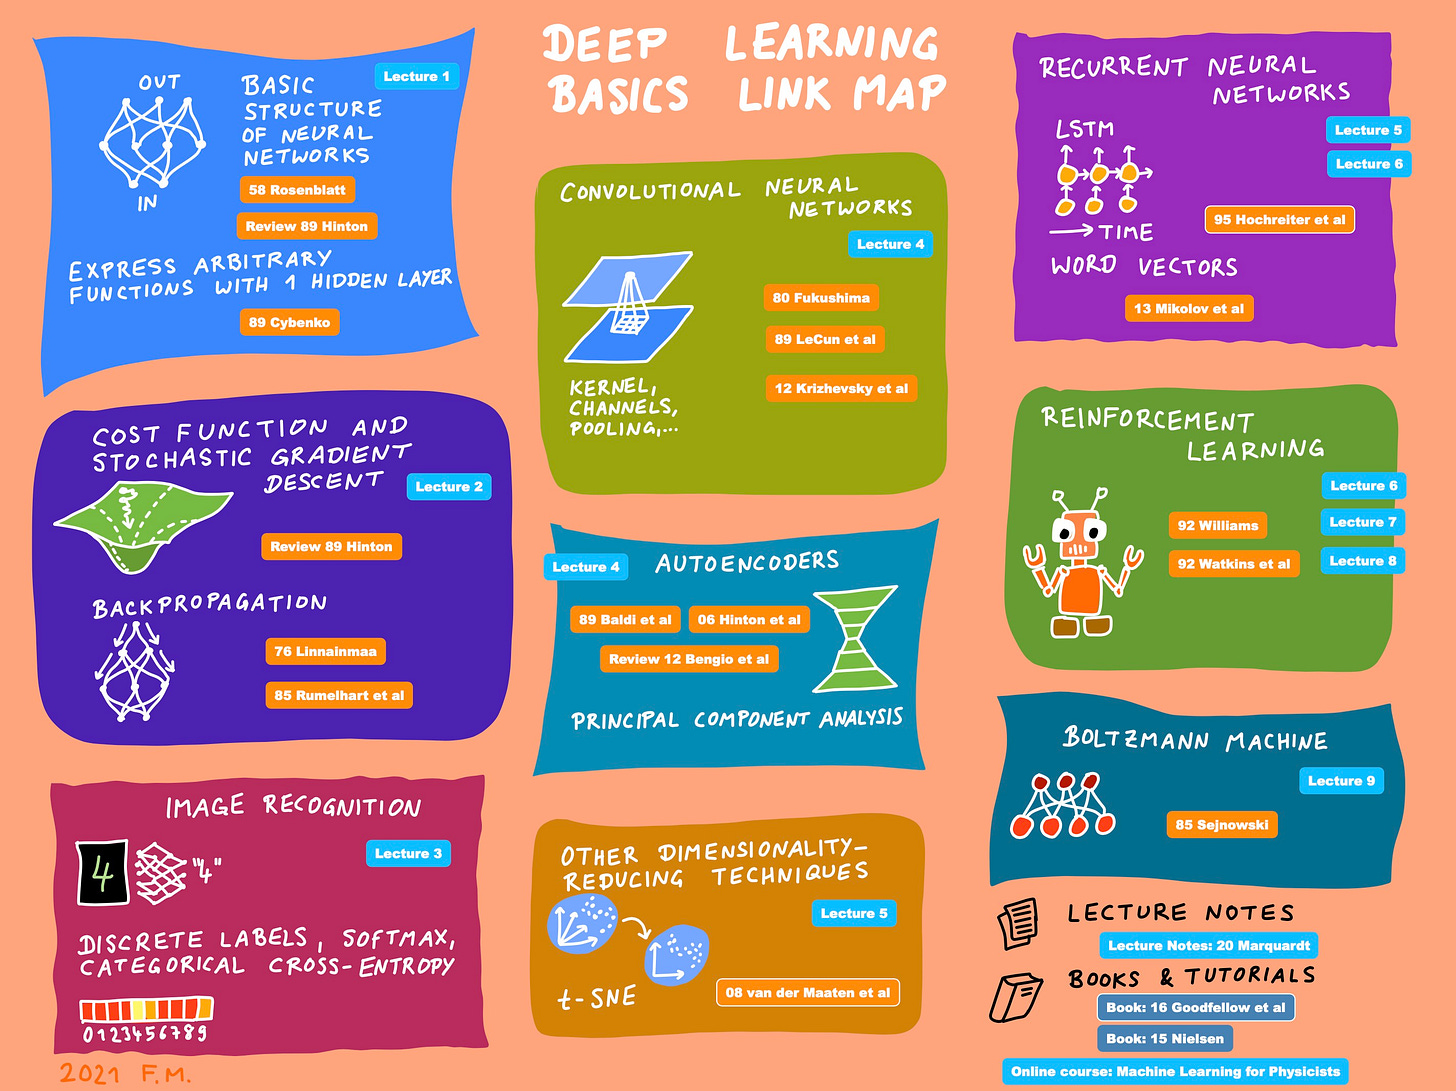 DEEP LEARNING
BASICS LINK MAP
OUT
IN
BASIC
STRUCTURE
OF NEURAL
NETWORKS
Lecture 1
58 Rosenblatt
Review 89 Hinton
EXPRESS ARBITRARY
FUNCTIONS WITH 1 HIDDEN LAYER
89 Cybenko
COST FUNCTION AND
STOCHASTIC GRADIENT
DESCENT
Lecture 2
Review 89 Hinton
BACKPROPAGATION
76 Linnainmaa
85 Rumelhart et al
IMAGE RECOGNITION
Lecture 3
4
"4"
DISCRETE LABELS, SOFTMAX,
CATEGORICAL CROSS-ENTROPY
0123456789
2021 F.M.
CONVOLUTIONAL NEURAL
NETWORKS
Lecture 4
80 Fukushima
89 LeCun et al
12 Krizhevsky et al
KERNEL,
CHANNELS,
POOLING,...
Lecture 4
AUTOENCODERS
89 Baldi et al
06 Hinton et al
Review 12 Bengio et al
PRINCIPAL COMPONENT ANALYSIS
OTHER DIMENSIONALITY-
REDUCING TECHNIQUES
Lecture 5
t-SNE
08 van der Maaten et al
RECURRENT NEURAL
NETWORKS
Lecture 5
Lecture 6
LSTM
95 Hochreiter et al
TIME
WORD VECTORS
13 Mikolov et al
REINFORCEMENT
LEARNING
Lecture 6
Lecture 7
Lecture 8
92 Williams
92 Watkins et al
BOLTZMANN MACHINE
Lecture 9
85 Sejnowski
LECTURE NOTES
Lecture Notes: 20 Marquardt
BOOKS & TUTORIALS
Book: 16 Goodfellow et al
Book: 15 Nielsen
Online course: Machine Learning for Physicists